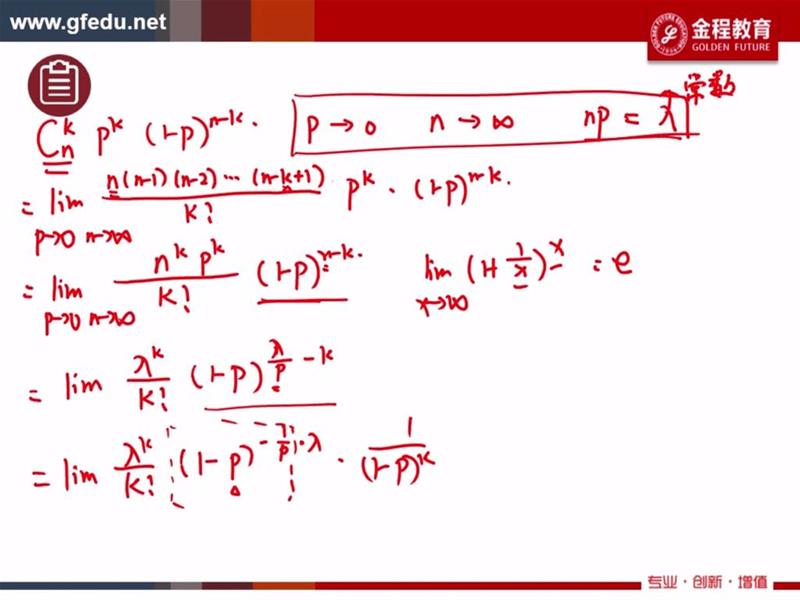 www.gfedu.net
金程教育
GOLDEN FUTURE
常数
C_n^k p^k (1-p)^{n-k}.
p→0 n→∞ np = λ
= lim_{p→0 n→∞} \frac{n(n-1)(n-2)⋯(n-k+1)}{k!} p^k · (1-p)^{n-k}.
= lim_{p→0 n→∞} \frac{n^k p^k}{k!} (1-p)^{n-k}.
lim_{x→∞} (1+\frac{1}{x})^x = e
= lim \frac{λ^k}{k!} (1-p)^{\frac{λ}{p}-k}
= lim \frac{λ^k}{k!} (1-p)^{-\frac{1}{p}·λ} · \frac{1}{(1-p)^k}
专业·创新·增值